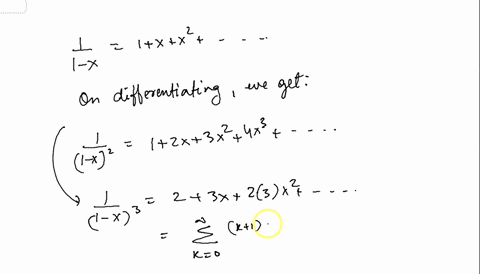 1/(1-x) = 1+x+x²+ - - - -
On differentiating, we get:
1/(1-x)² = 1+2x+3x²+4x³+ - - - -
1/(1-x)³ = 2+3x+2(3)x²+ - - - -
= ∞ Σ K=0 (k+1) ·